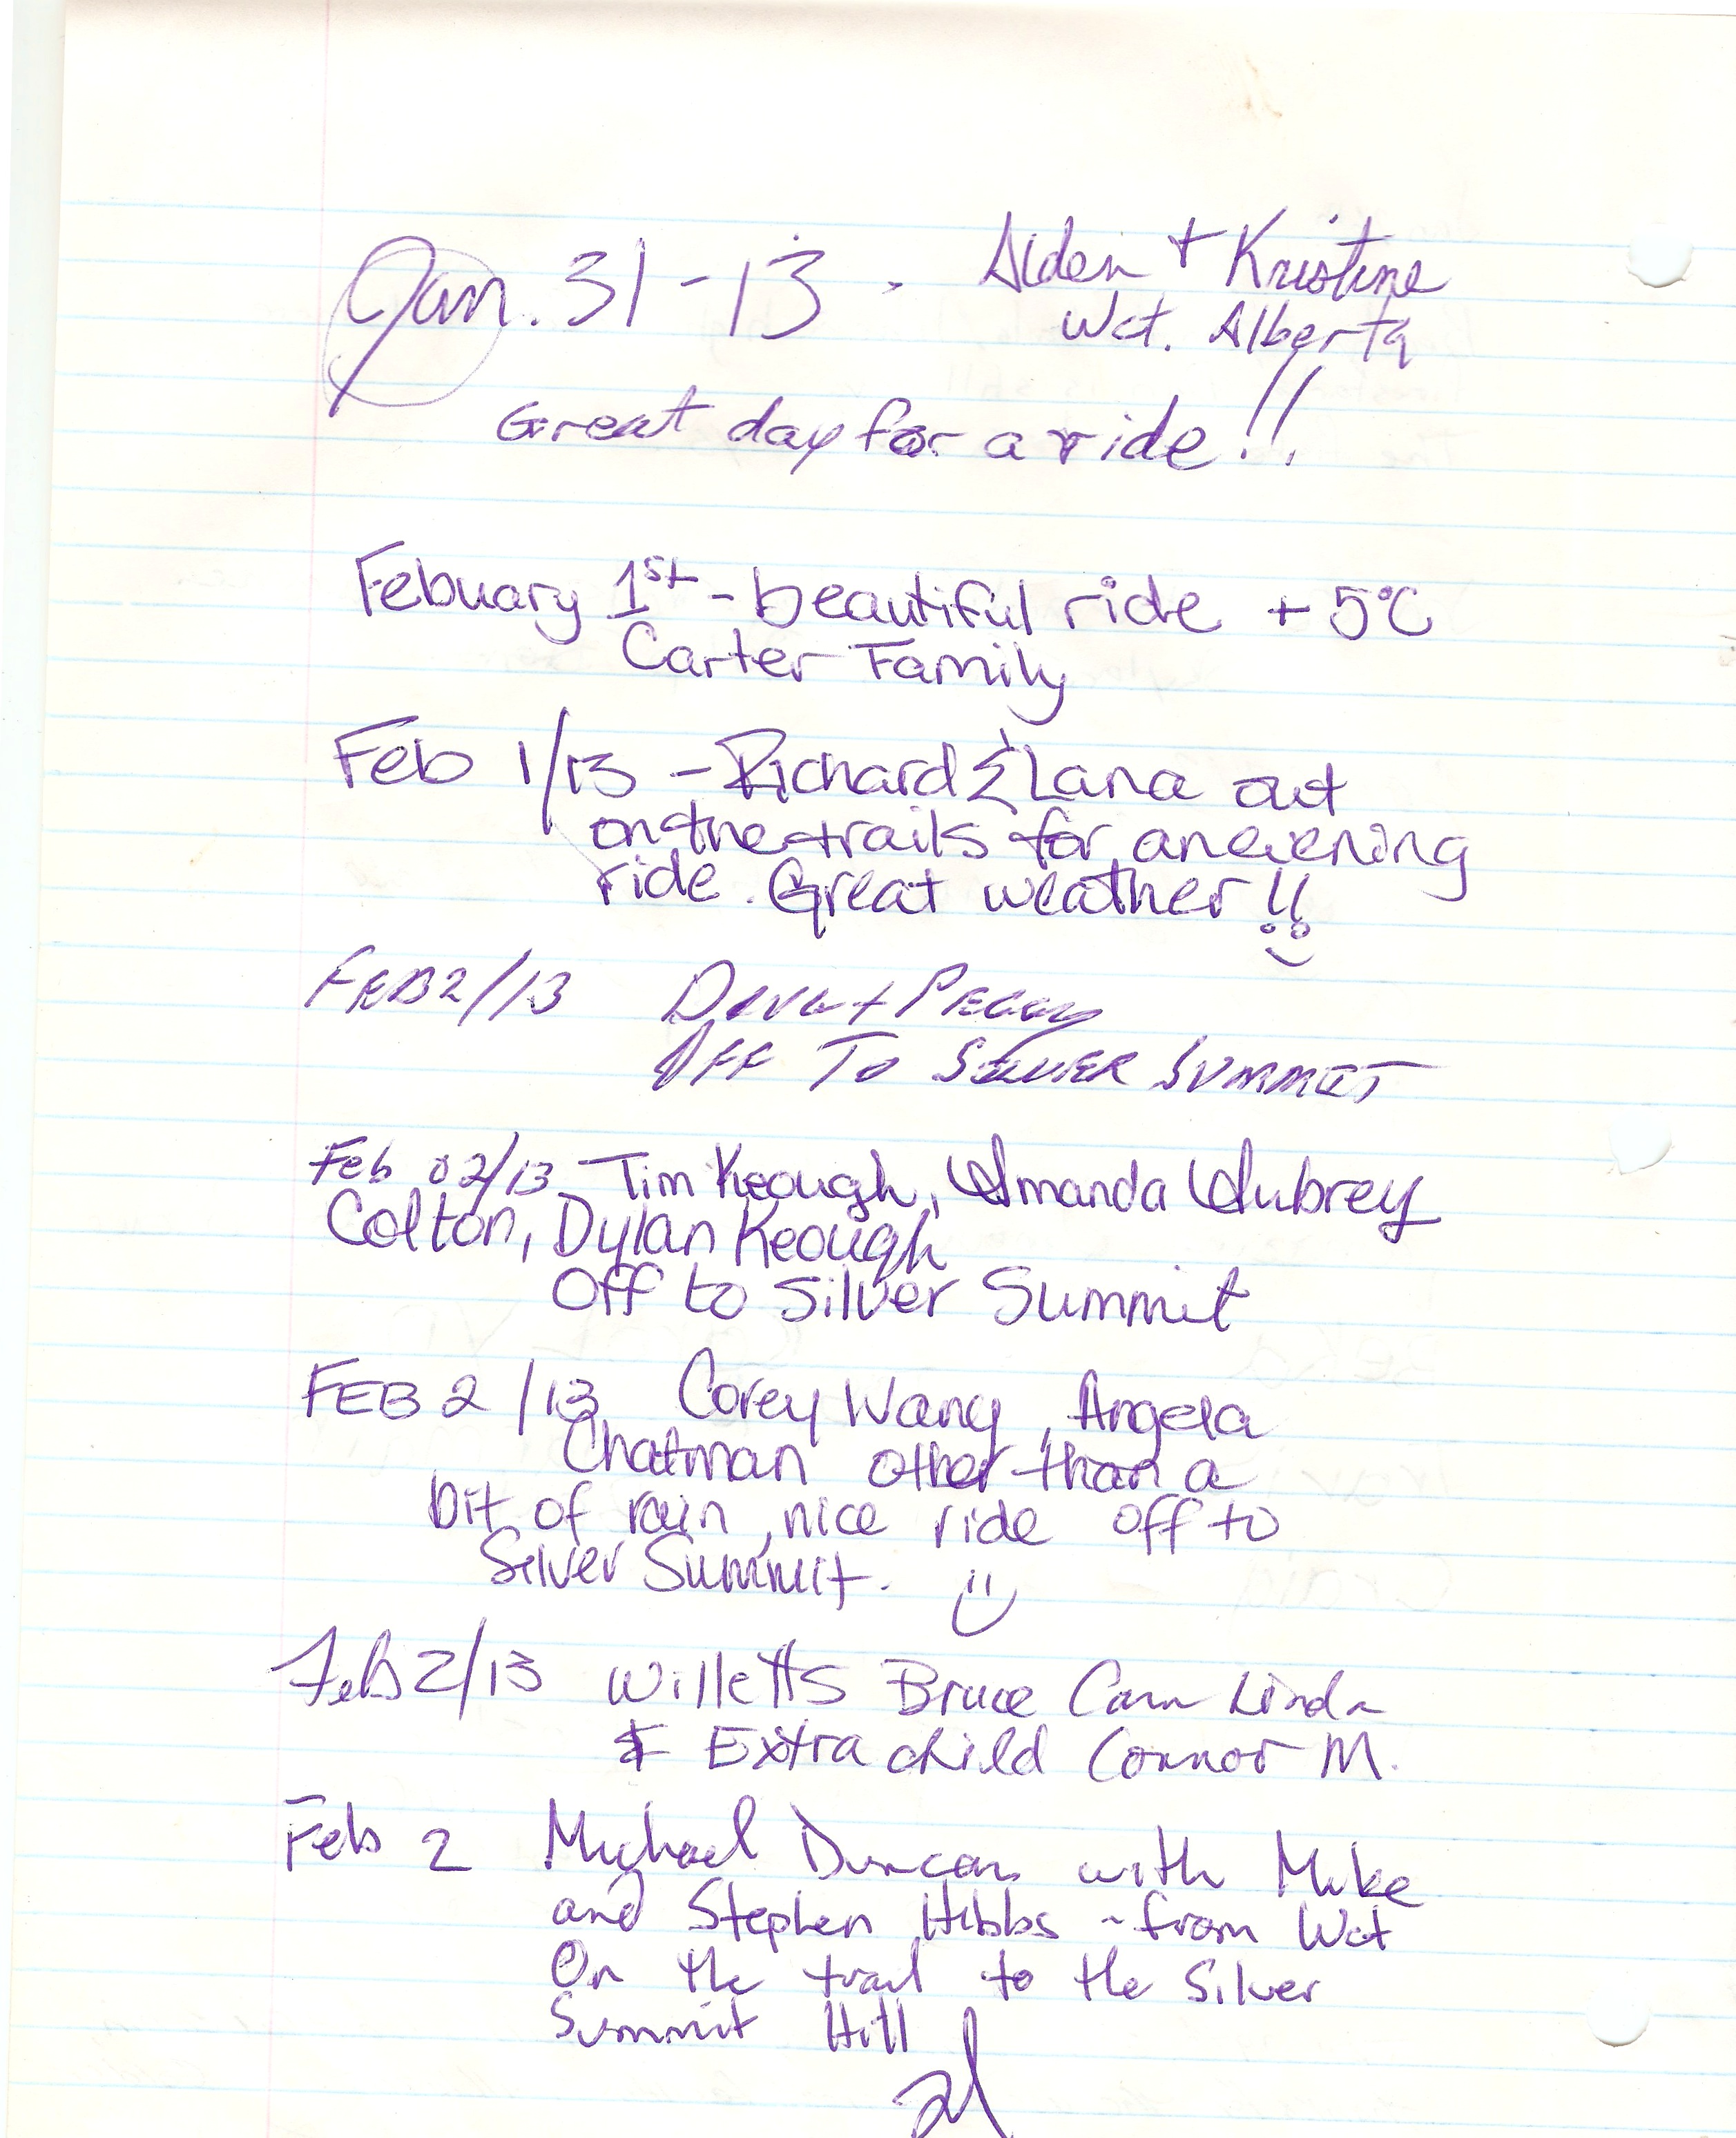 Jan. 31-13 . Alden + Kristine
Wct. Alberta
Great day for a ride!!
Febuary 1st - beautiful ride +5°C
Carter Family
Feb 1/13 - Richard & Lana out
on the trails for an evening
ride. Great weather!!
FEB 2/13 DAVE + PEGGY
OFF TO SILVER SUMMIT
Feb 02/13 Tim Keough, Amanda Aubrey
Colton, Dylan Keough
Off to Silver Summit
FEB 2/13 Corey Wang, Angela
Chatman other than a
bit of rain, nice ride off to
Silver Summit. :)
Feb 2/13 Willetts Bruce Cam Linda
& Extra child Connor M.
Feb 2 Michael Duncan with Mike
and Stephen Hibbs - from Wct
On the trail to the Silver
Summit Hill